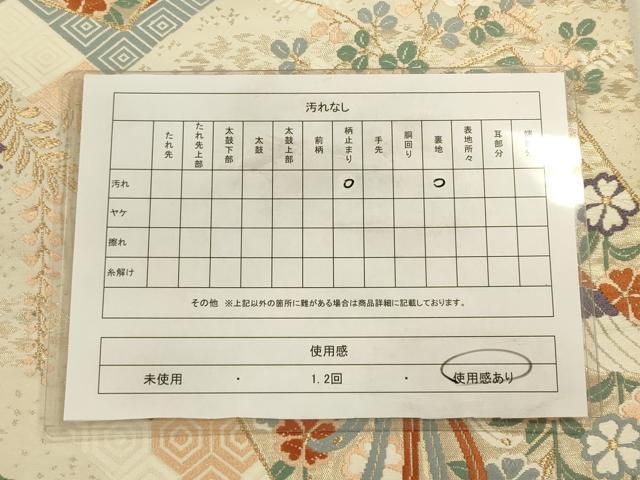 汚れなし
たれ先 たれ先上部 太鼓下部 太鼓 太鼓上部 前柄 柄止まり 手先 胴回り 裏地 表地所々 耳部分
汚れ
ヤケ
擦れ
糸解け
その他 ※上記以外の箇所に難がある場合は商品詳細に記載しております。
使用感
未使用 ・ 1.2回 ・ 使用感あり